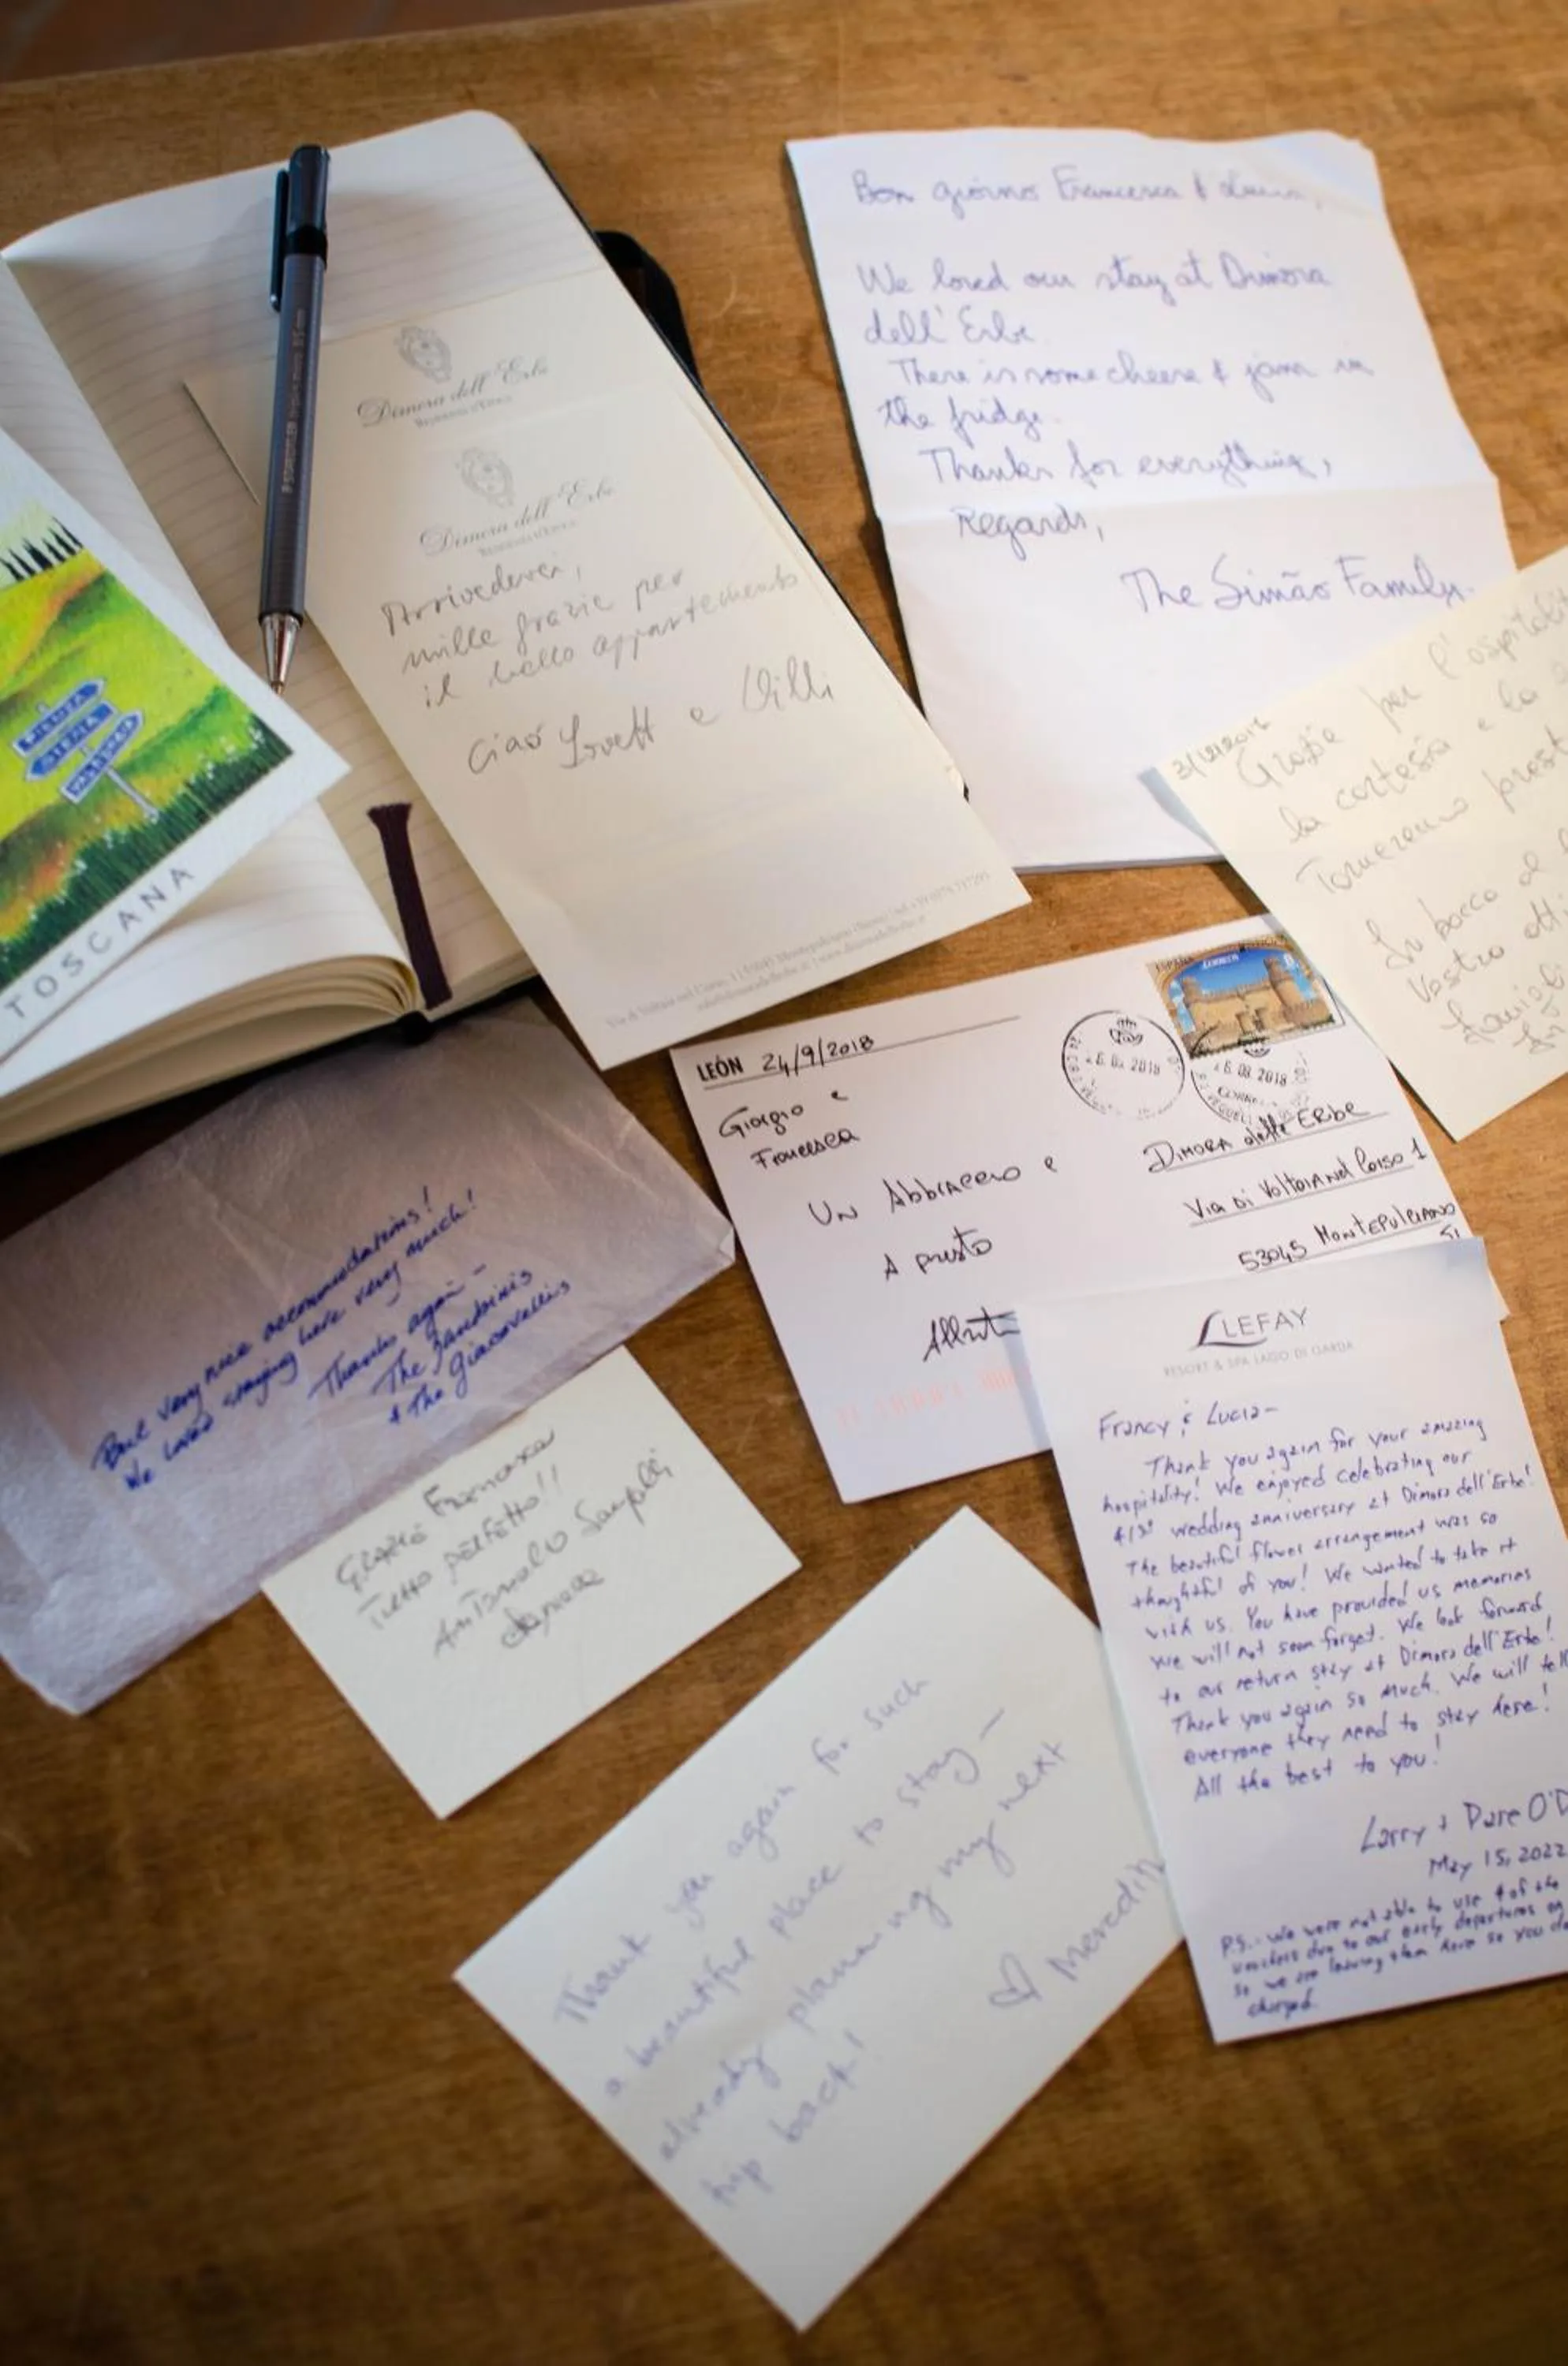 Dimora dell'Erbe
Dimora dell'Erbe
Arrivederci,
mille grazie per
il bello appartemento
Ciao e Willi
Bon giorno Francesca & Lucia,
We loved our stay at Dimora
dell'Erbe
There is some cheese & jam in
the fridge.
Thanks for everything,
Regards,
The Simão Family.
SIENA
TOSCANA
STAEDTLER
3/12/2018
Grazie per l'ospitali
la cortesia e la
Torneremo prest
In bocca al
Vostro
LEÓN 24/9/2018
Giorgio e
Francesca
Un Abbraccio e
A presto
ESPAÑA CORREOS
2018
26 09 2018
DIMORA delle ERbe
Via di Voltaia nel Corso 1
53045 MONTEPULCIANO
SI
But very nice accommodations!
We loved staying here very much!
Thanks again -
The
& The
Grazie Francesca
Tutto perfetto!!
LEFAY
RESORT & SPA LAGO DI GARDA
Francy & Lucia-
Thank you again for your amazing
hospitality! We enjoyed celebrating our
wedding anniversary at Dimora dell'Erbe!
The beautiful flower arrangement was so
thoughtful of you! We wanted to take it
with us. You have provided us memories
we will not soon forget. We look forward
to our return stay at Dimora dell'Erbe!
Thank you again so much. We will tell
everyone they need to stay here!
All the best to you!
Larry + O'D
May 15, 2022
P.S. - We were not able to use 4 of the
vouchers due to our early departures
so we are leaving them here so you
charged.
Thank you again for such
a beautiful place to stay –
already planning my next
trip back!
♡ Meredith